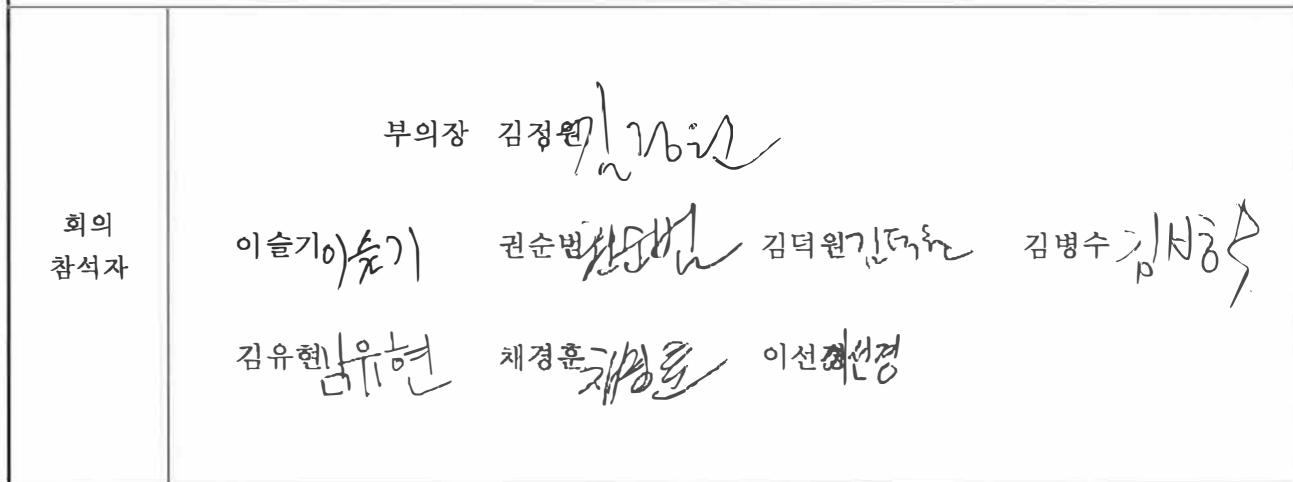 회의
참석자
부의장 김정원 김정원
이슬기 이슬기 권순범 권순범 김덕원 김덕원 김병수
김유현 김유현 채경훈 채경훈 이선경 이선경